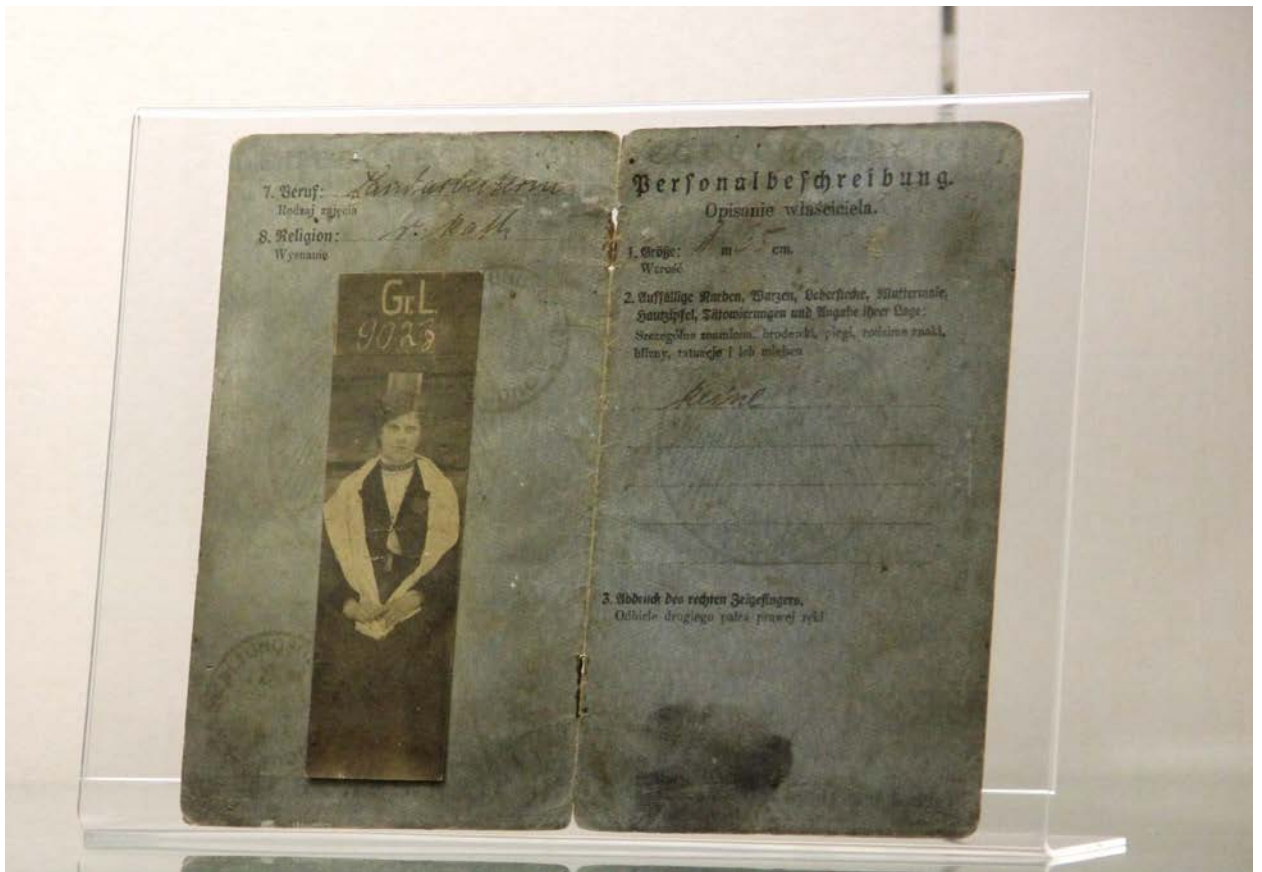 7. Beruf: Landarbeiterin
Rodzaj zajęcia
8. Religion: r. kath
Wyznanie
Gr.L
9023
Personalbeschreibung.
Opisanie właściciela.
1. Größe: 1 m 55 cm.
Wzrost
2. Auffällige Narben, Warzen, Leberflecke, Muttermale,
Hautzipfel, Tätowierungen und Angabe ihrer Lage:
Szczególne znamiona, brodawki, piegi, rodzime znaki,
blizny, tatuacje i ich miejsca
keine
3. Abdruck des rechten Zeigefingers.
Odbicie drugiego palca prawej ręki